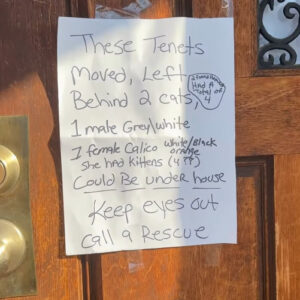 These Tenets
Moved, Left
Behind 2 cats,
Had A
Total of
4
1 male Grey/white
1 female Calico white/Black
orange
She had kittens (4??)
Could Be under house
Keep eyes out
call a Rescue